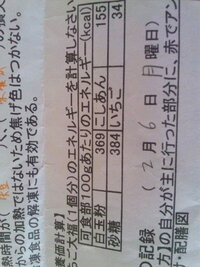 熱時間が(
からの加熱ではないため焦げ色はつかない。
冷凍食品の解凍にも有効である。
養価計算】
ちご大福(個分)のエネルギーを計算しなさい
可食部100gあたりのエネルギー(kcal)
白玉粉 369 こしあん 155
砂糖 384 いちご 34
の記録 (2月6日月曜日)
方】の自分が主に行った部分に、赤でアン
・配膳図